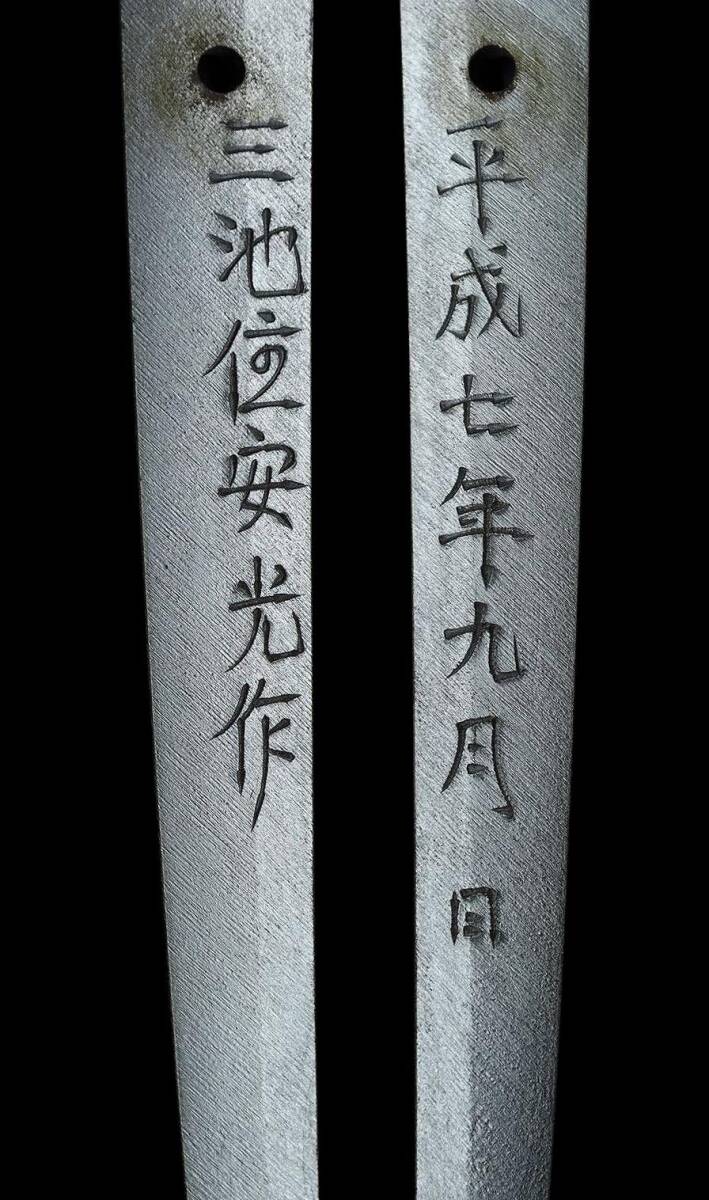 三池住安光作
平成七年九月日